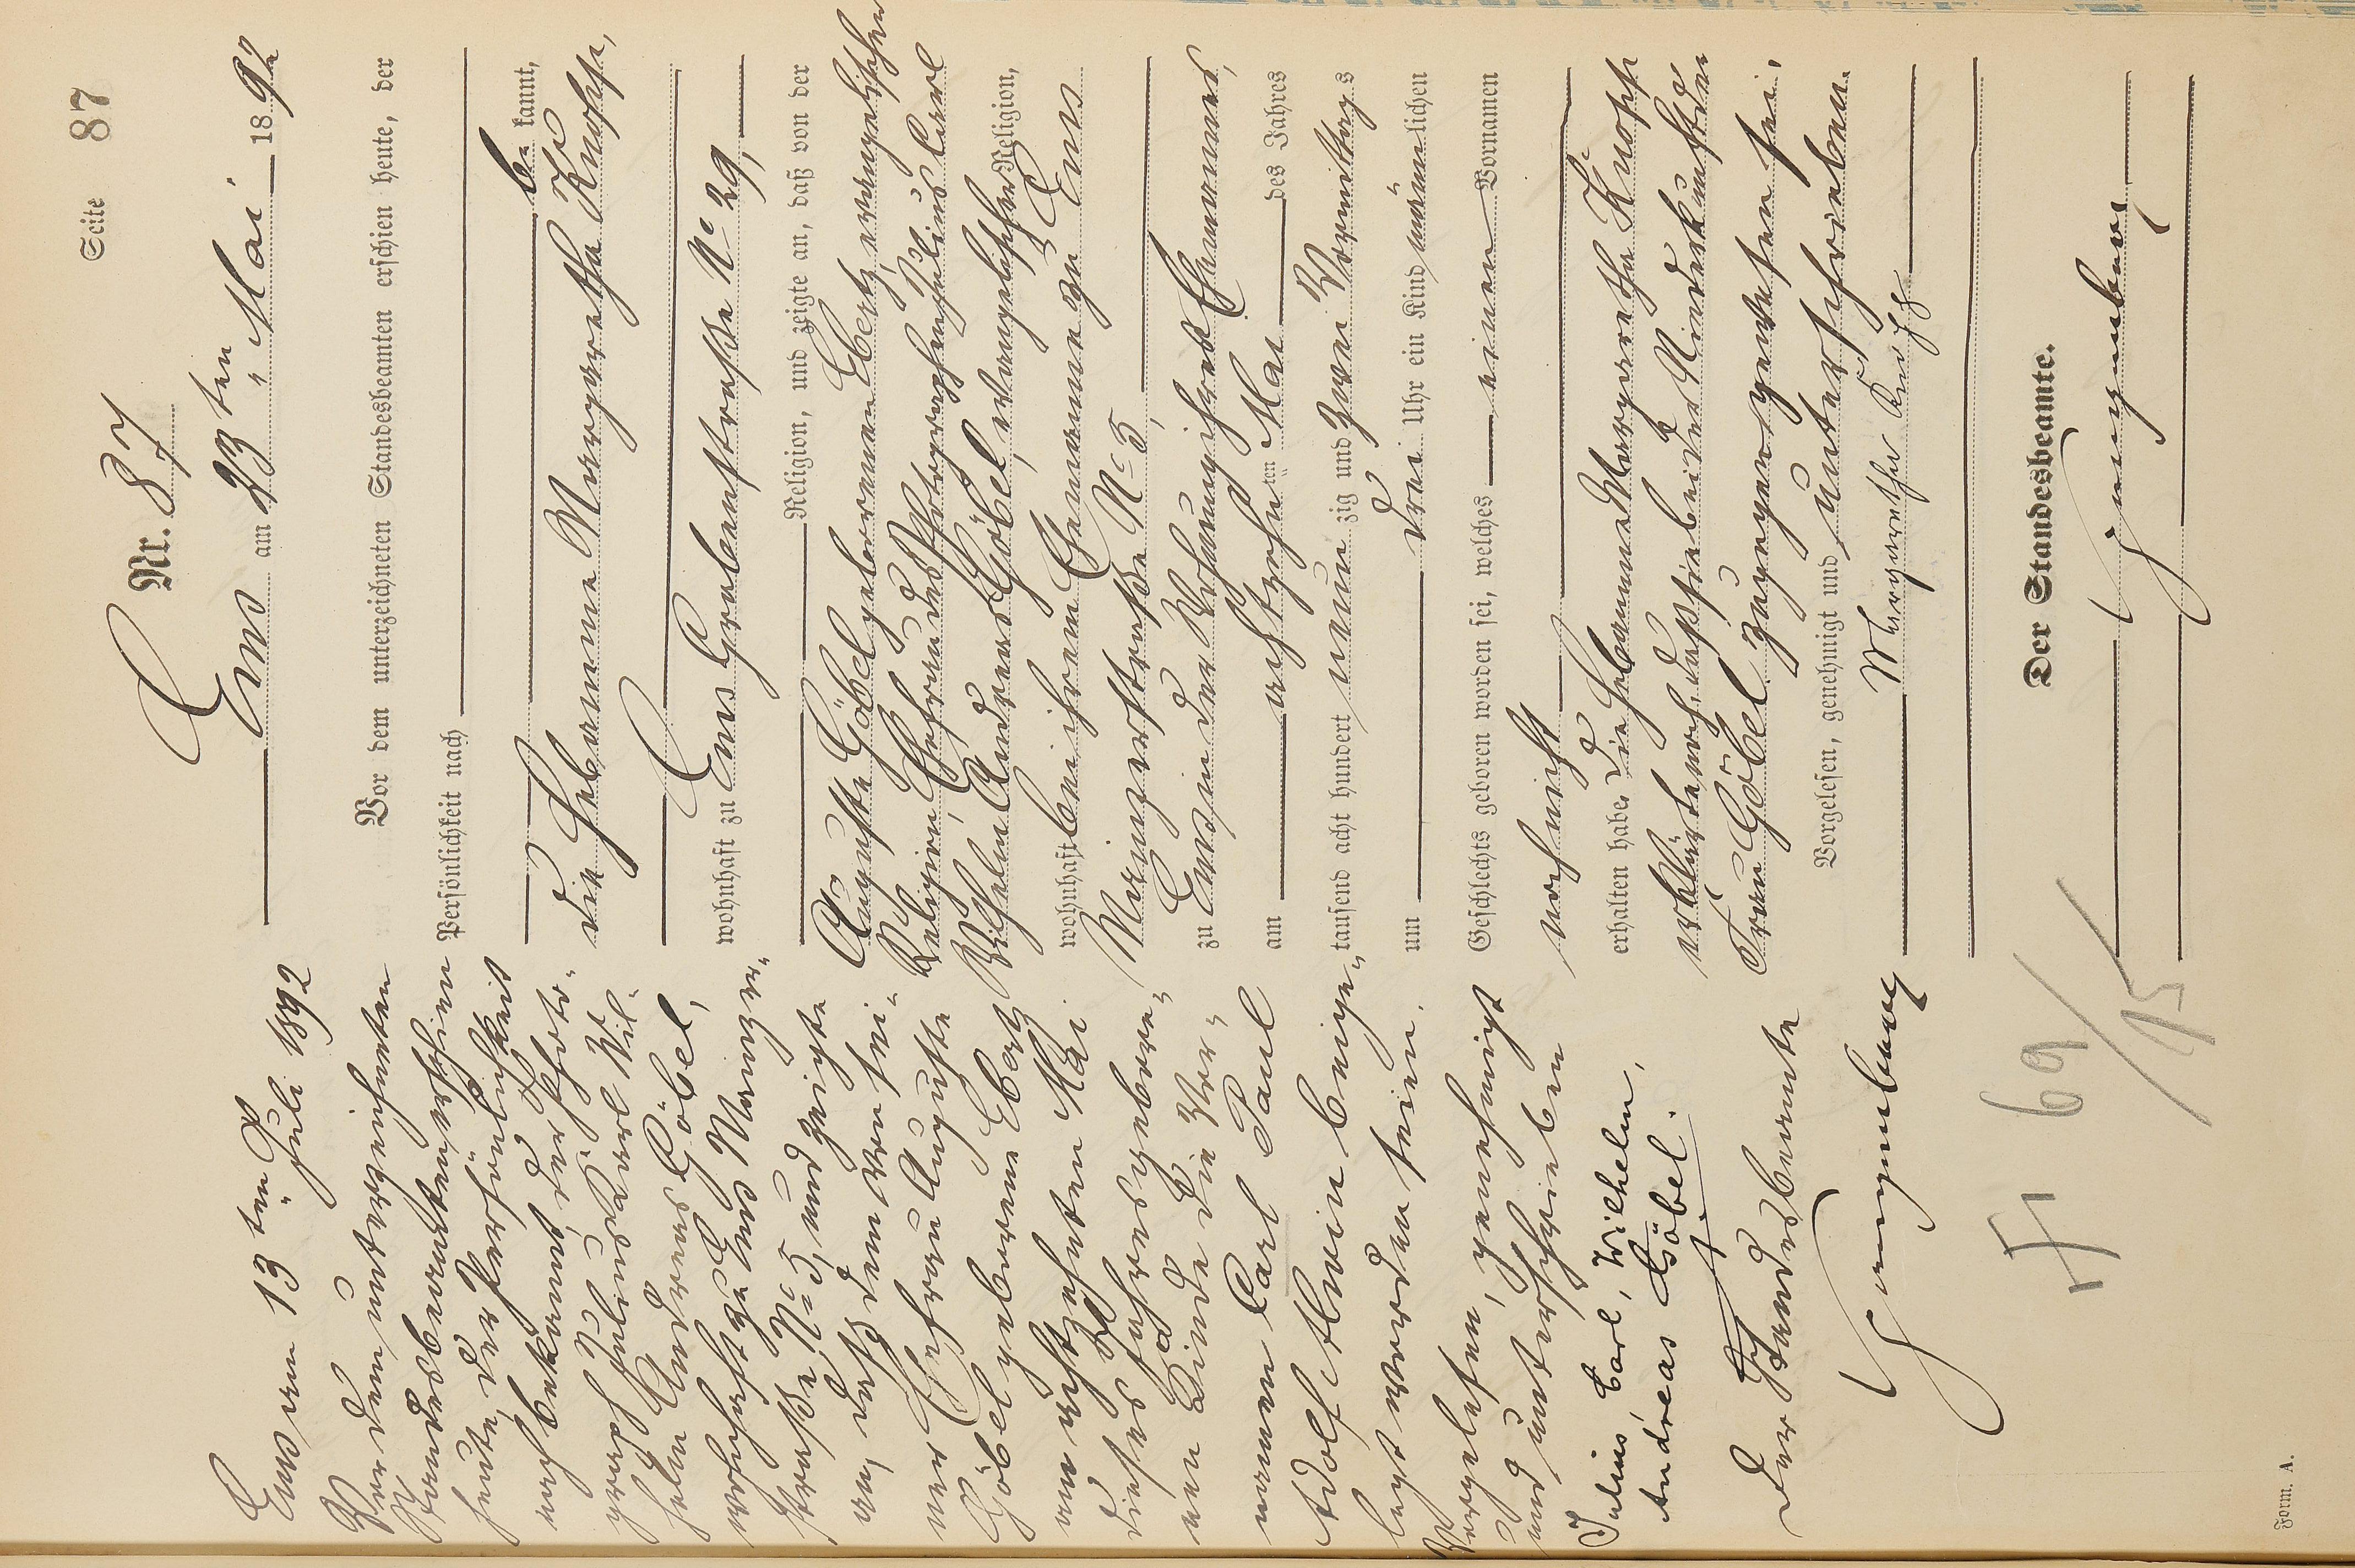 Seite 87
Nr. 87
Ems am 23ten Mai 1892
Vor dem unterzeichneten Standesbeamten erschien heute, der
Persönlichkeit nach
bekannt,
die Hebamme Margaretha Knopp,
wohnhaft zu Ems Grabenstraße No 29,
Religion, und zeigte an, daß von der
Auguste Göbel geborenen Ebertz, evangelischer
Religion, Ehefrau des Photographen Julius Carl
Wilhelm Andreas Göbel, evangelischer Religion,
wohnhaft bei ihrem Ehemanne zu Ems
Mainzerstraße No 5,
zu Ems in der Wohnung ihres Ehemannes,
am achtzehnten Mai des Jahres
tausend acht hundert neunzig und zwei Vormittags
um drei Uhr ein Kind männlichen
Geschlechts geboren worden sei, welches einen Vornamen
noch nicht
erhalten habe. Die Hebamme Margaretha Knopp
erklärte noch, daß sie bei der Niederkunft der
Frau Göbel zugegen gewesen sei,
Vorgelesen, genehmigt und unterschrieben
Margarethe Knopp
Der Standesbeamte.
Ems am 13ten Juli 1892
Vor dem unterzeichneten
Standesbeamten erschien
heute, der Persönlichkeit
nach bekannt, der Photo-
graph Julius Karl Wil-
helm Andreas Göbel,
wohnhaft zu Ems Mainzer-
straße No 5, und zeigte
an, daß dem von sei-
ner Ehefrau Auguste
Göbel geborene Ebertz
am achtzehnten Mai
dieses Jahres gebore-
nen Kinde die Vor-
namen Carl Paul
Adolf Alwin beige-
legt worden seien.
Vorgelesen, genehmigt
und unterschrieben
Julius, Carl, Wilhelm,
Andreas Göbel.
Der Standesbeamte
69/95
Form. A.